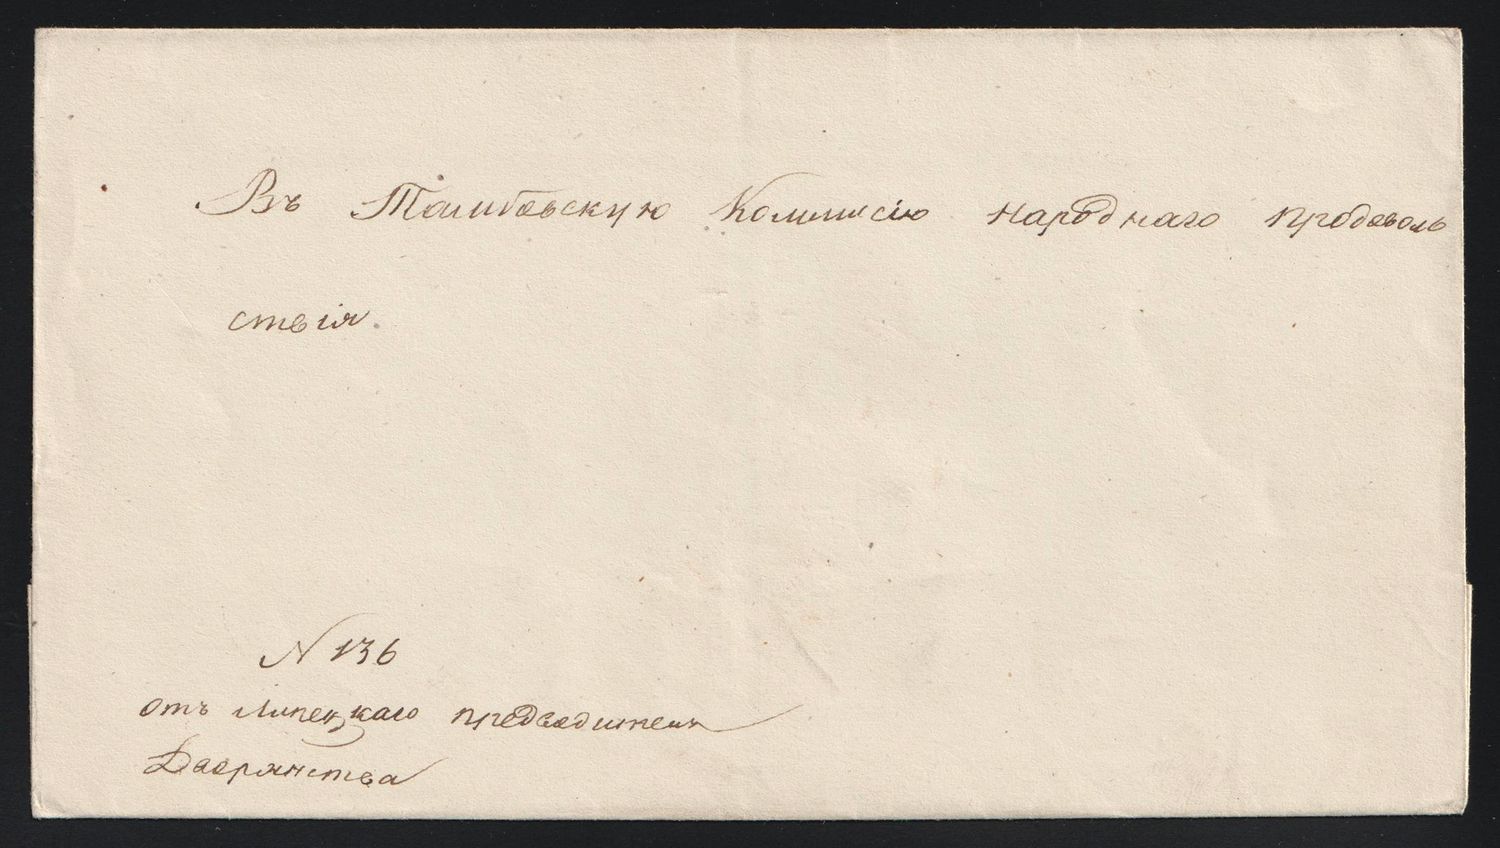 Въ Тамбовскую Коммисію народнаго продоволь
ствія.
N 136
отъ Липецкаго предводителя
Дворянства